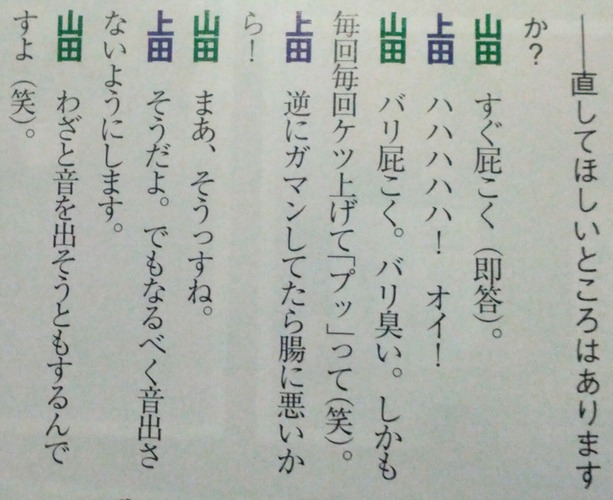 ──直してほしいところはあります
か？
山田　すぐ屁こく（即答）。
上田　ハハハハハ！　オイ！
山田　バリ屁こく。バリ臭い。しかも
毎回毎回ケツ上げて「プッ」って（笑）。
上田　逆にガマンしてたら腸に悪いか
ら！
山田　まあ、そうっすね。
上田　そうだよ。でもなるべく音出さ
ないようにします。
山田　わざと音を出そうともするんで
すよ（笑）。